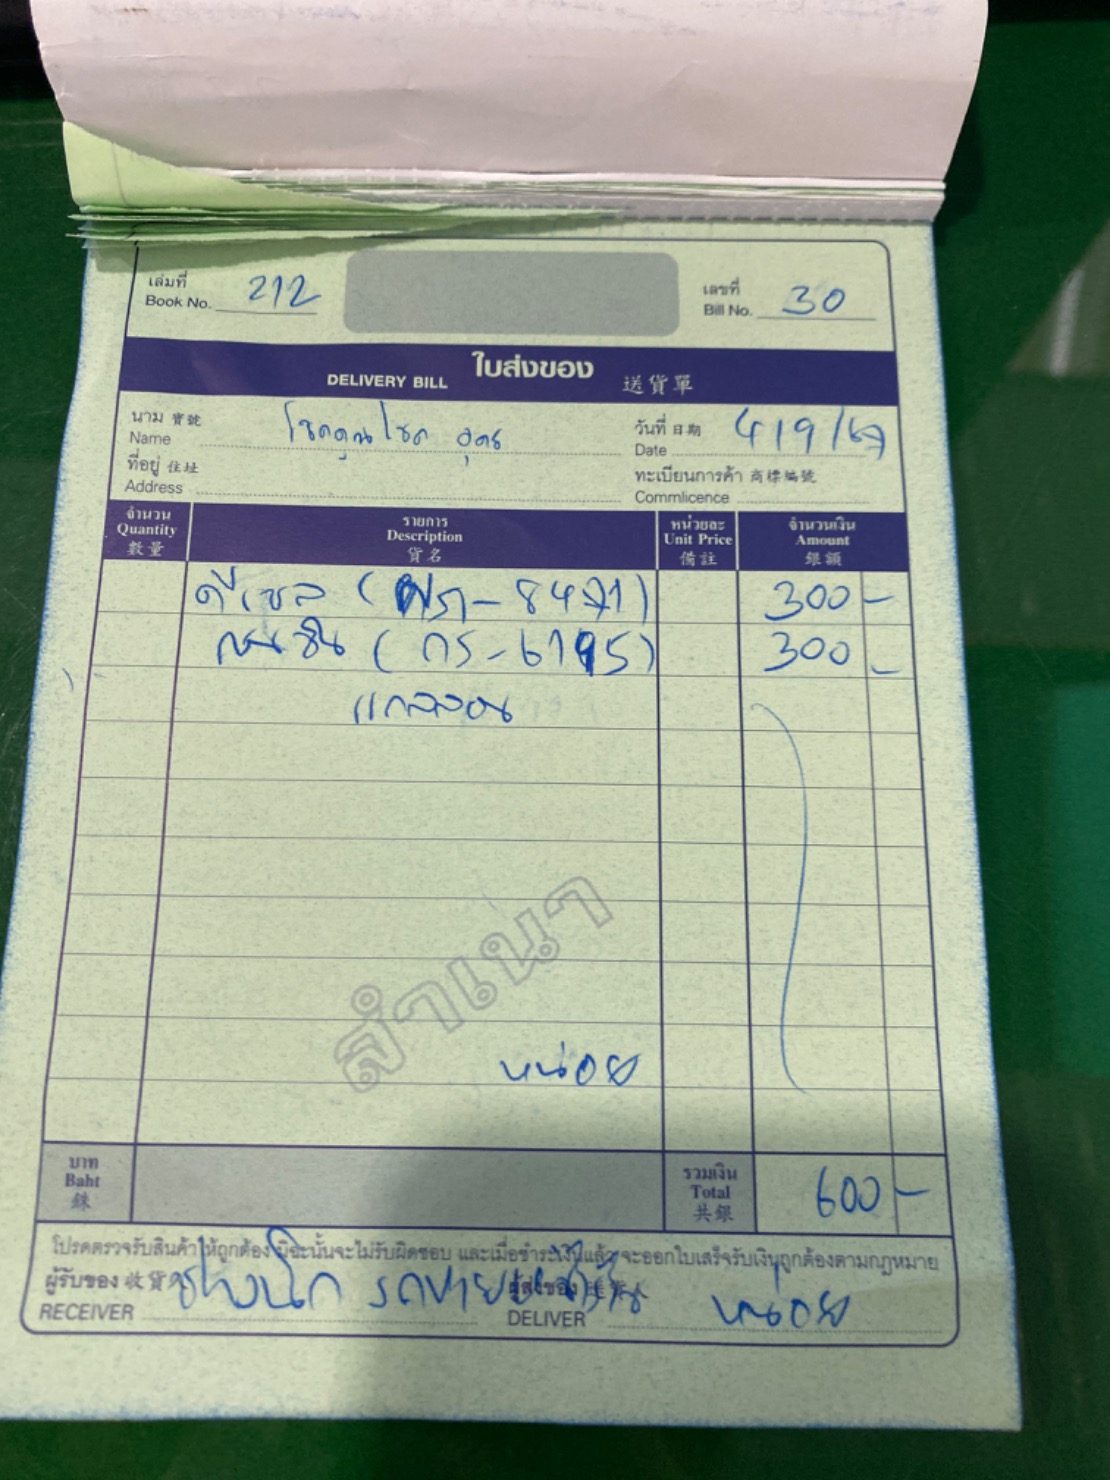 เล่มที่ 212
Book No.
เลขที่ 30
Bill No.
DELIVERY BILL ใบส่งของ 送貨單
นาม 寶號
Name โชคคูณโชค อุดร
วันที่ 日期 4/9/67
Date
ที่อยู่ 住址
Address
ทะเบียนการค้า 商標編號
Commlicence
จำนวน รายการ หน่วยละ จำนวนเงิน
Quantity Description Unit Price Amount
數量 貨名 備註 銀額
ดีเซล ( -8471) 300-
เบนซิน (กร-6195) 300-
แกลลอน
สำเนา
หน่อย
บาท รวมเงิน
Baht Total 600-
銖 共銀
โปรดตรวจรับสินค้าให้ถูกต้อง มิฉะนั้นจะไม่รับผิดชอบ และเมื่อชำระเงินแล้ว จะออกใบเสร็จรับเงินถูกต้องตามกฎหมาย
ผู้รับของ 收貨 ผู้ส่งของ
RECEIVER ช่างนึก DELIVER หน่อย